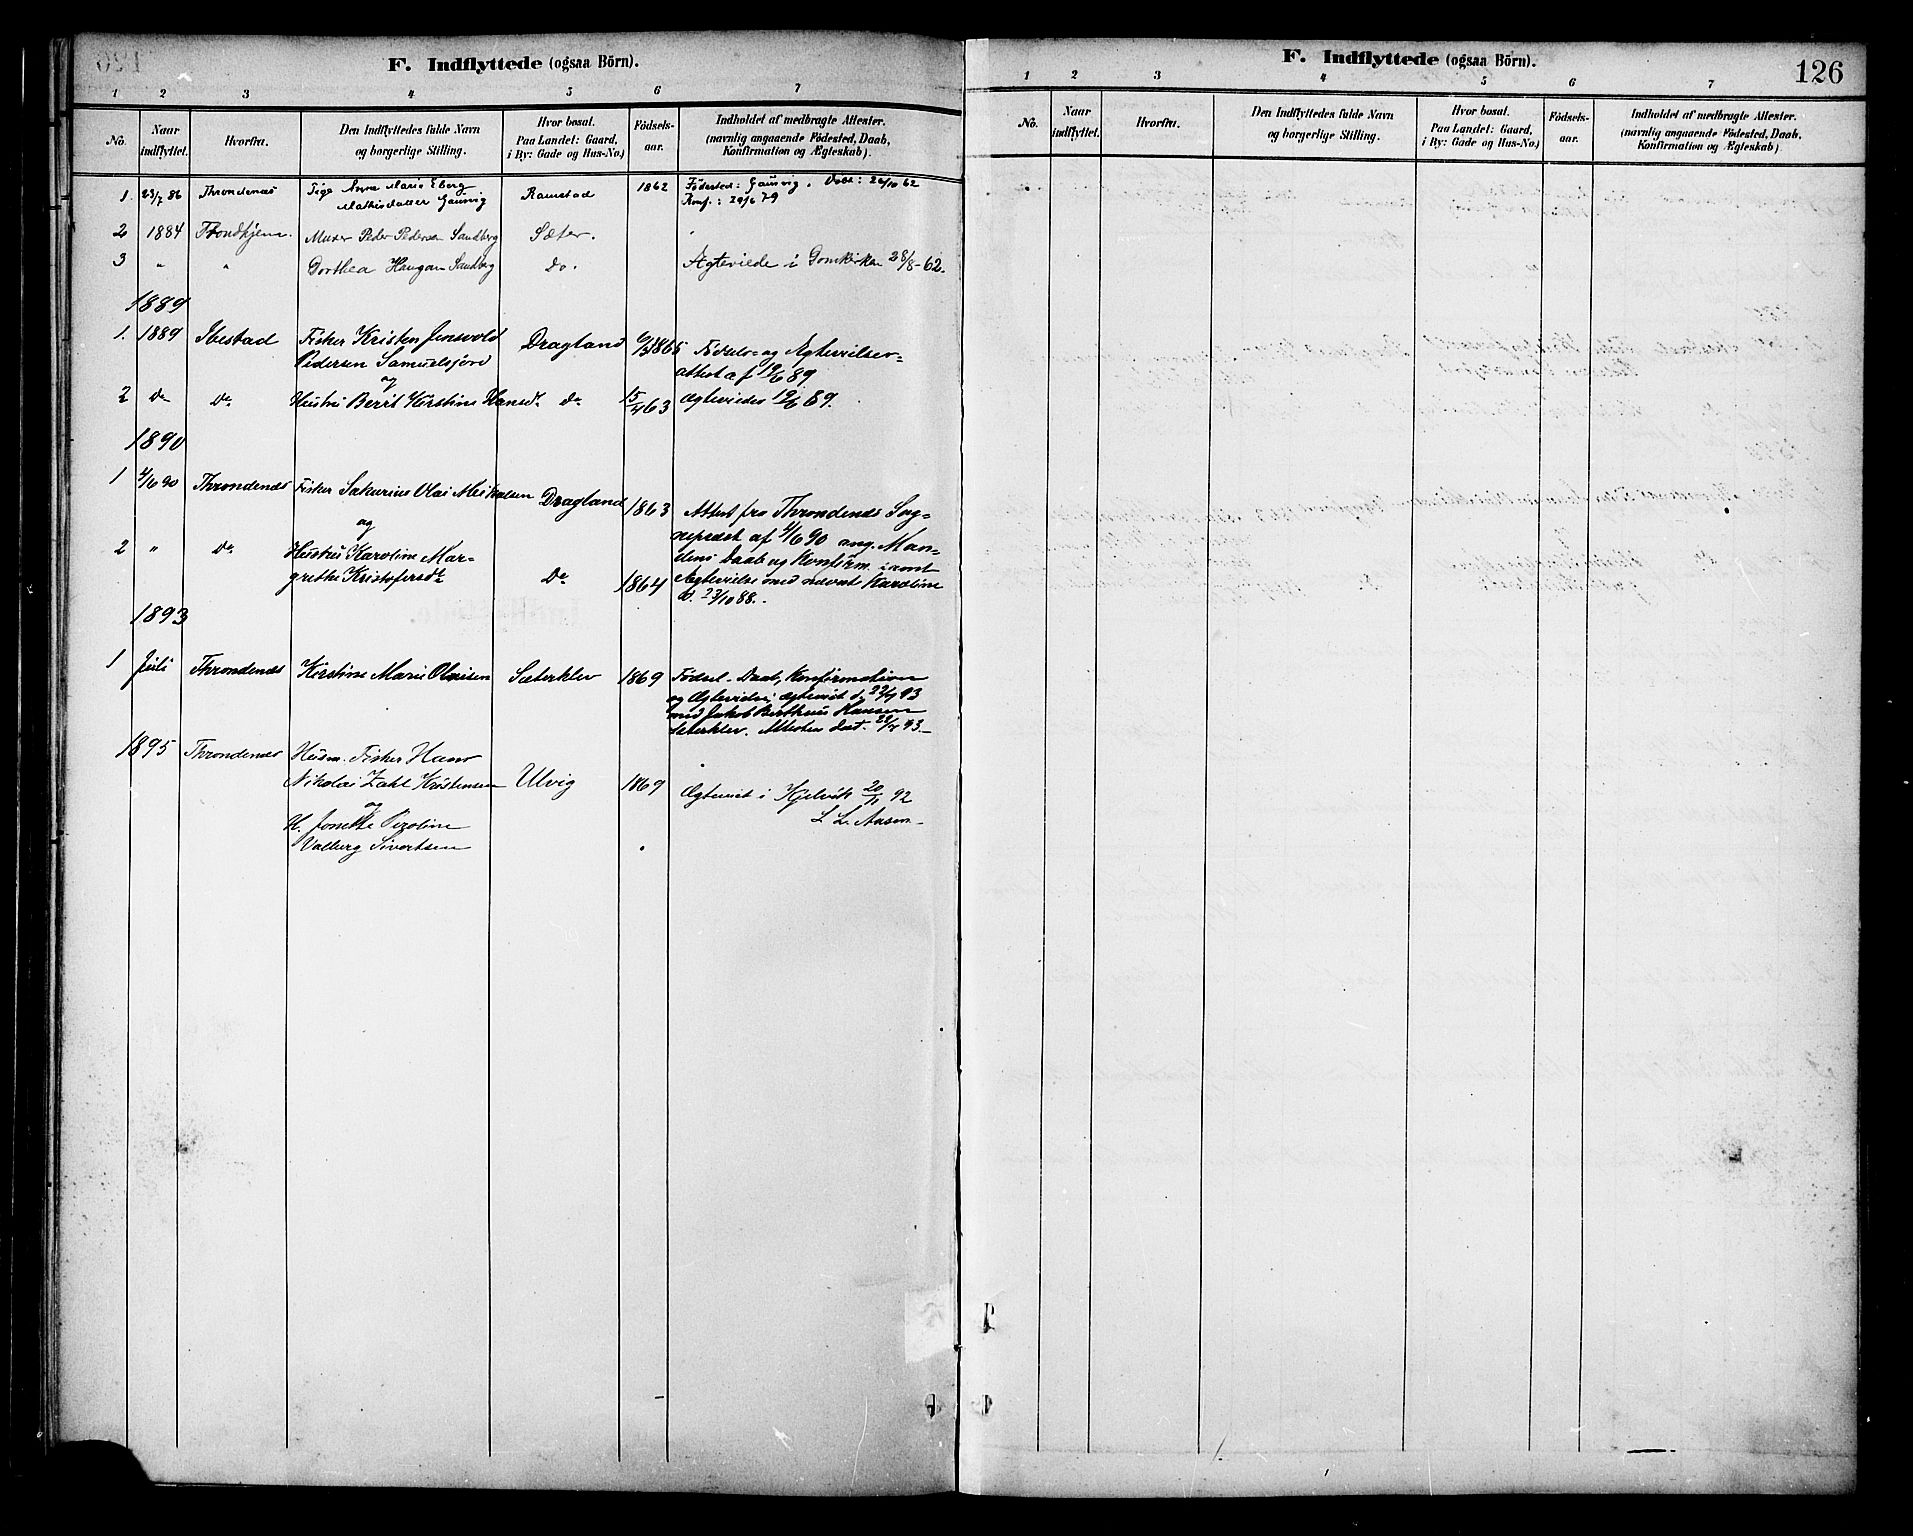 F. Indflyttede (ogsaa Börn).
1 2 3 4 5 6 7
No. Naar indflyttet. Hvorfra. Den Indflyttedes fulde Navn og borgerlige Stilling. Hvor bosat. Paa Landet: Gaard, i By: Gade og Hus-No.) Födsels-aar. Indholdet af medbragte Attester. (navnlig angaaende Födested, Daab, Konfirmation og Ægteskab).
1. 23/7 86 Throndenæs Pige Anne Marie Eberg Ramstad 1862 Födested: Gausvig. Döbt: 26/10 62
Mathisdatter Gausvig Konf.: 29/6 79
2 1884 Trondhjem Murer Peder Pedersen Sandberg Sæter.
3 " " Dorthea Haugan Sandberg Do. Ægteviede i Domkirken 28/8-62.
1889
1. 1889 Ibestad Fisker Kristen Jensvold Dragland 1865 Fødsels- og Ægtevielses-
Pedersen Samuelsjord attest af 19/6 89.
og
2 Do Do Hustru Berit Kirstine Hansd. Do 15/4 63 Ægteviedes 19/6 89.
1890
1 4/6 90 Throndenæs Fisker Sakarius Olai Mikalsen Dragland 1863 Attest fra Throndenæs Sog-
og nepræst af 4/6 90 ang. Man-
2 " Do Hustru Karoline Mar- dens Daab og Konfirm. samt
grethe Kristofersdr Do 1864 Ægtevielse med nævnte Karoline
d. 23/10 88.
1893
1 Juli Throndenæs Kirstine Marie Olaisen Sæterklev 1869 Fødsel- Daab, Konfirmation
og Ægtevielse; ægteviet d. 22/7 93
med Jakob Bertheus Hansen
Sæterklev. Attesten dat. 22/7 93.
1895 Throndenæs Husm. Fisker Hans
Nikolai Zahl Kristensen Ulvig 1869 Ægteviet i Kjelvik 20/11 92
og L. L. Aasen
H. Jonette Peroline
Valborg Sivertsen
F. Indflyttede (ogsaa Börn). 126
1 2 3 4 5 6 7
No. Naar indflyttet. Hvorfra. Den Indflyttedes fulde Navn og borgerlige Stilling. Hvor bosat. Paa Landet: Gaard, i By: Gade og Hus-No.) Födsels-aar. Indholdet af medbragte Attester. (navnlig angaaende Födested, Daab, Konfirmation og Ægteskab).